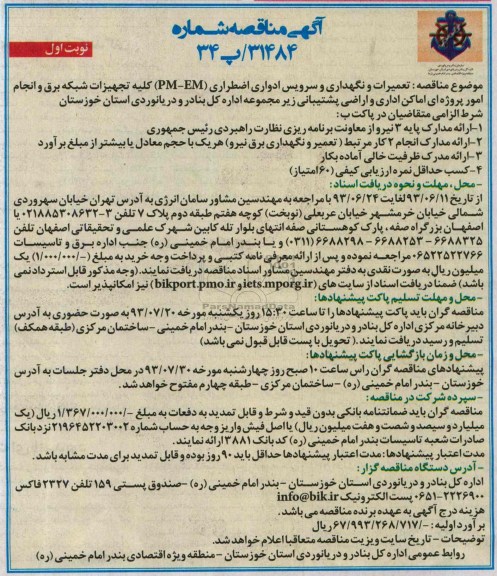 آگهی مناقصه شماره
۳۱۴۸۴/پ ۳۴
نوبت اول
موضوع مناقصه : تعمیرات و نگهداری و سرویس ادواری اضطراری (PM-EM) کلیه تجهیزات شبکه برق و انجام
امور پروژه ای اماکن اداری و اراضی پشتیبانی زیر مجموعه اداره کل بنادر و دریانوردی استان خوزستان
شرط الزامی متقاضیان در پاکت ب :
۱-ارائه مدارک پایه ۳ نیرو از معاونت برنامه ریزی نظارت راهبردی رئیس جمهوری
۲-ارائه مدارک انجام ۲ کار مرتبط ( تعمیر و نگهداری برق نیرو) هر یک با حجم معادل یا بیشتر از مبلغ برآورد
۳-ارائه مدرک ظرفیت خالی آماده بکار
۴-کسب حداقل نمره ارزیابی کیفی (۶۰ امتیاز)
- محل ، مهلت و نحوه دریافت اسناد :
از تاریخ ۹۳/۰۶/۱۱ لغایت ۹۳/۰۶/۲۴ با مراجعه به مهندسین مشاور سامان انرژی به آدرس تهران خیابان سهروردی
شمالی خیابان خرمشهر خیابان عربعلی (نوبخت) کوچه هفتم طبقه دوم پلاک ۷ تلفن ۳-۰۲۱۸۸۵۳۰۸۶۳۲ یا
اصفهان بزرگراه صفه ، پارک کوهستانی صفه انتهای بلوار تله کابین شهرک علمی و تحقیقاتی اصفهان تلفن
۶۶۸۸۳۲۵ - ۶۶۸۸۲۵۳ - ۶۶۸۸۲۹۸ (۰۳۱۱) و یا بندر امام خمینی (ره) جنب اداره برق و تاسیسات
۰۶۵۲۲۵۲۲۷۶۶ مراجعه نموده و پس از ارائه معرفی نامه کتبی و پرداخت وجه خرید به مبلغ (/۱/۰۰۰/۰۰۰-) یک
میلیون ریال به صورت نقدی به دفتر مهندسین مشاور اسناد مناقصه دریافت نمایند. (وجه مذکور قابل استرداد نمی
باشد) ضمنا دریافت اسناد از سایت های (iets.mporg.ir و bikport.pmo.ir) نیز امکانپذیر است.
- محل و مهلت تسلیم پاکت پیشنهادها :
مناقصه گران باید پاکت پیشنهادها را تا ساعت ۱۵:۳۰ روز یکشنبه مورخه ۹۳/۰۷/۲۰ به صورت حضوری به آدرس
دبیرخانه مرکزی اداره کل بنادر و دریانوردی استان خوزستان -بندر امام خمینی -ساختمان مرکزی (طبقه همکف)
تسلیم و رسید دریافت نمایند. ( تحویل با پست قابل قبول نمی باشد)
- محل و زمان بازگشایی پاکت پیشنهادها :
پیشنهادهای مناقصه گران راس ساعت ۱۰ صبح روز چهارشنبه مورخه ۹۳/۰۷/۳۰ در محل دفتر جلسات به آدرس
خوزستان -بندر امام خمینی (ره) -ساختمان مرکزی -طبقه چهارم مفتوح خواهد شد.
- سپرده شرکت در مناقصه :
مناقصه گران باید ضمانتنامه بانکی بدون قید و شرط و قابل تمدید به دفعات به مبلغ /۱/۳۶۷/۰۰۰/۰۰۰- ریال (یک
میلیارد و سیصد و شصت و هفت میلیون ریال) یا اصل فیش واریز وجه به حساب شماره ۲۱۹۶۴۵۲۲۰۳۰۰۲ نزد بانک
صادرات شعبه تاسیسات بندر امام خمینی (ره) کد بانک ۳۸۸۱ ارائه نمایند.
مدت اعتبار پیشنهادها: مدت اعتبار پیشنهادها حداقل باید ۹۰ روز بوده و قابل تمدید برای مدت مشابه باشد.
- آدرس دستگاه مناقصه گزار :
اداره کل بنادر و دریانوردی استان خوزستان - بندر امام خمینی (ره) -صندوق پستی ۱۵۹ تلفن ۲۳۲۷ فاکس
۰۶۵۱-۲۲۲۶۹۰۰ پست الکترونیک info@bik.ir
هزینه درج آگهی به عهده برنده مناقصه می باشد.
برآورد اولیه : /۶۷/۹۹۳/۲۶۸/۷۱۷- ریال
توضیحات - تاریخ سایت ویزیت مناقصه متعاقبا اعلام خواهد شد.
روابط عمومی اداره کل بنادر و دریانوردی استان خوزستان -منطقه ویژه اقتصادی بندر امام خمینی (ره)